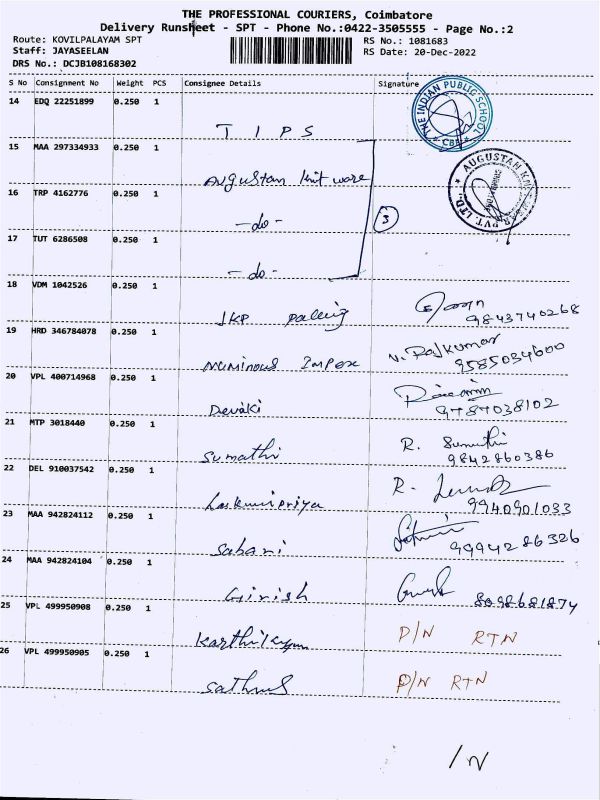 THE PROFESSIONAL COURIERS, Coimbatore
Delivery Runsheet - SPT - Phone No.:0422-3505555 - Page No.:2
Route: KOVILPALAYAM SPT
RS No.: 1081683
Staff: JAYASEELAN
RS Date: 20-Dec-2022
DRS No.: DCJB108168302
S No Consignment No Weight PCS Consignee Details Signature
14 EDQ 22251899 0.250 1
TIPS
THE INDIAN PUBLIC SCHOOL
CBE
15 MAA 297334933 0.250 1
Augustan knit ware
16 TRP 4162776 0.250 1
-do-
3
17 TUT 6286508 0.250 1
-do-
18 VDM 1042526 0.250 1
JKP
9843740268
19 HRD 346784078 0.250 1
Numinous Impex
V. Rajkumar
9585034600
20 VPL 400714968 0.250 1
Devaki
9787038102
21 MTP 3018440 0.250 1
Sumathi
R. Sumathi
9842860386
22 DEL 910037542 0.250 1
Laksmipriya
R.
9940901033
23 MAA 942824112 0.250 1
Sabari
9994286326
24 MAA 942824104 0.250 1
Girish
8098681874
25 VPL 499950908 0.250 1
P/N RTN
26 VPL 499950905 0.250 1
P/N RTN
/N